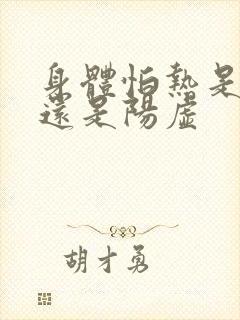 身體怕熱是
還是陽虛
胡才勇